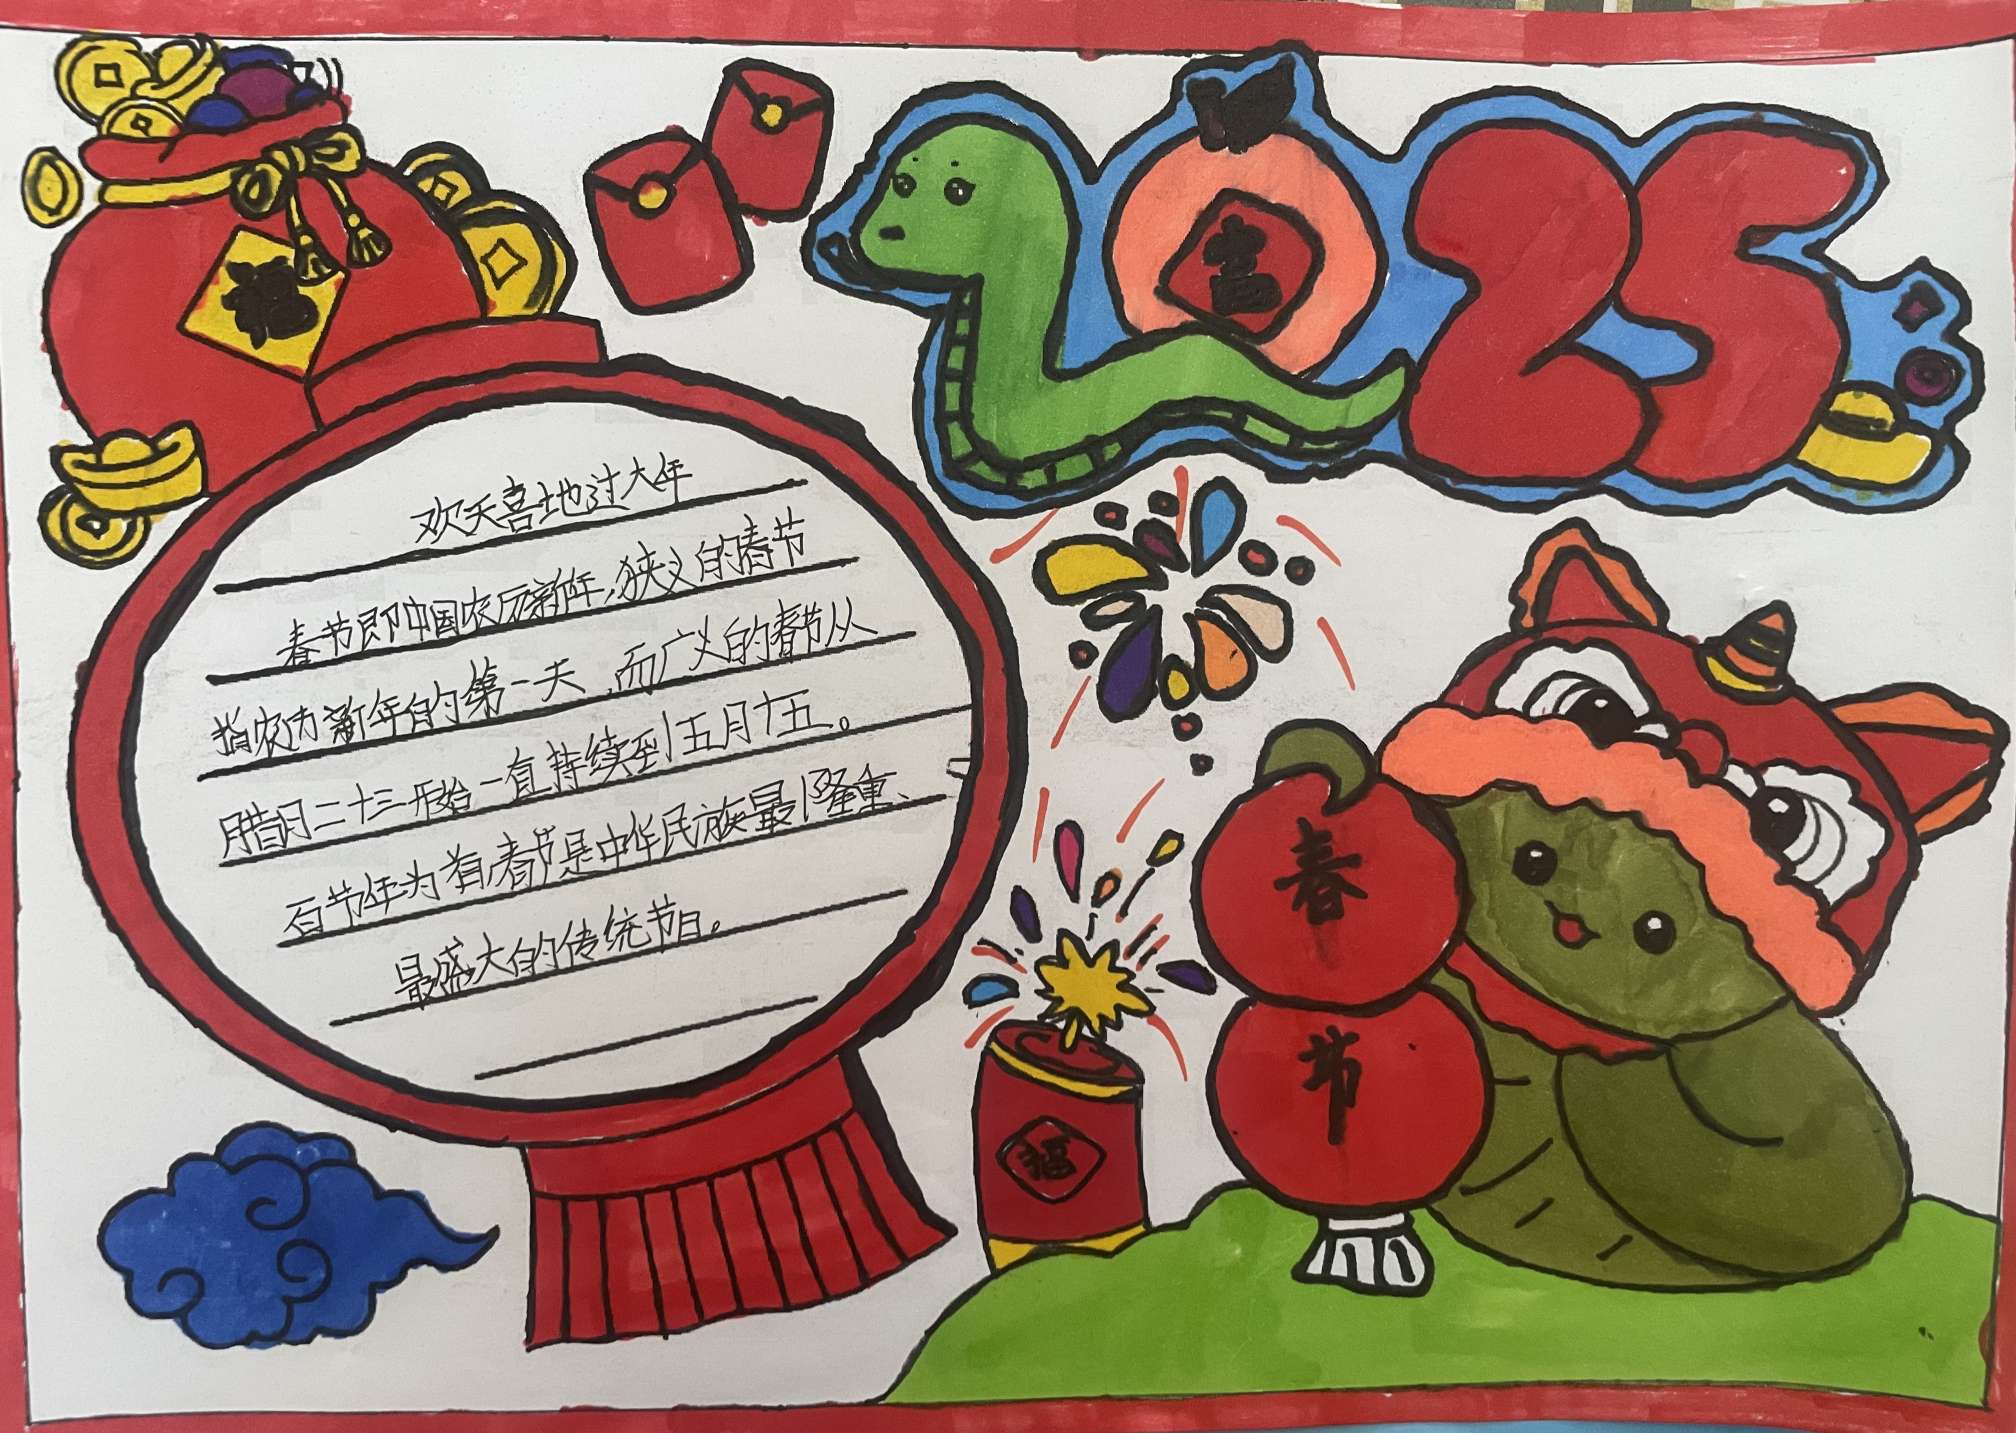 福
2025
吉
欢天喜地过大年
春节即中国农历新年,狭义的春节
指农历新年的第一天,而广义的春节从
腊月二十三开始一直持续到正月十五。
百节年为首,春节是中华民族最隆重、
最盛大的传统节日。
春
节
福